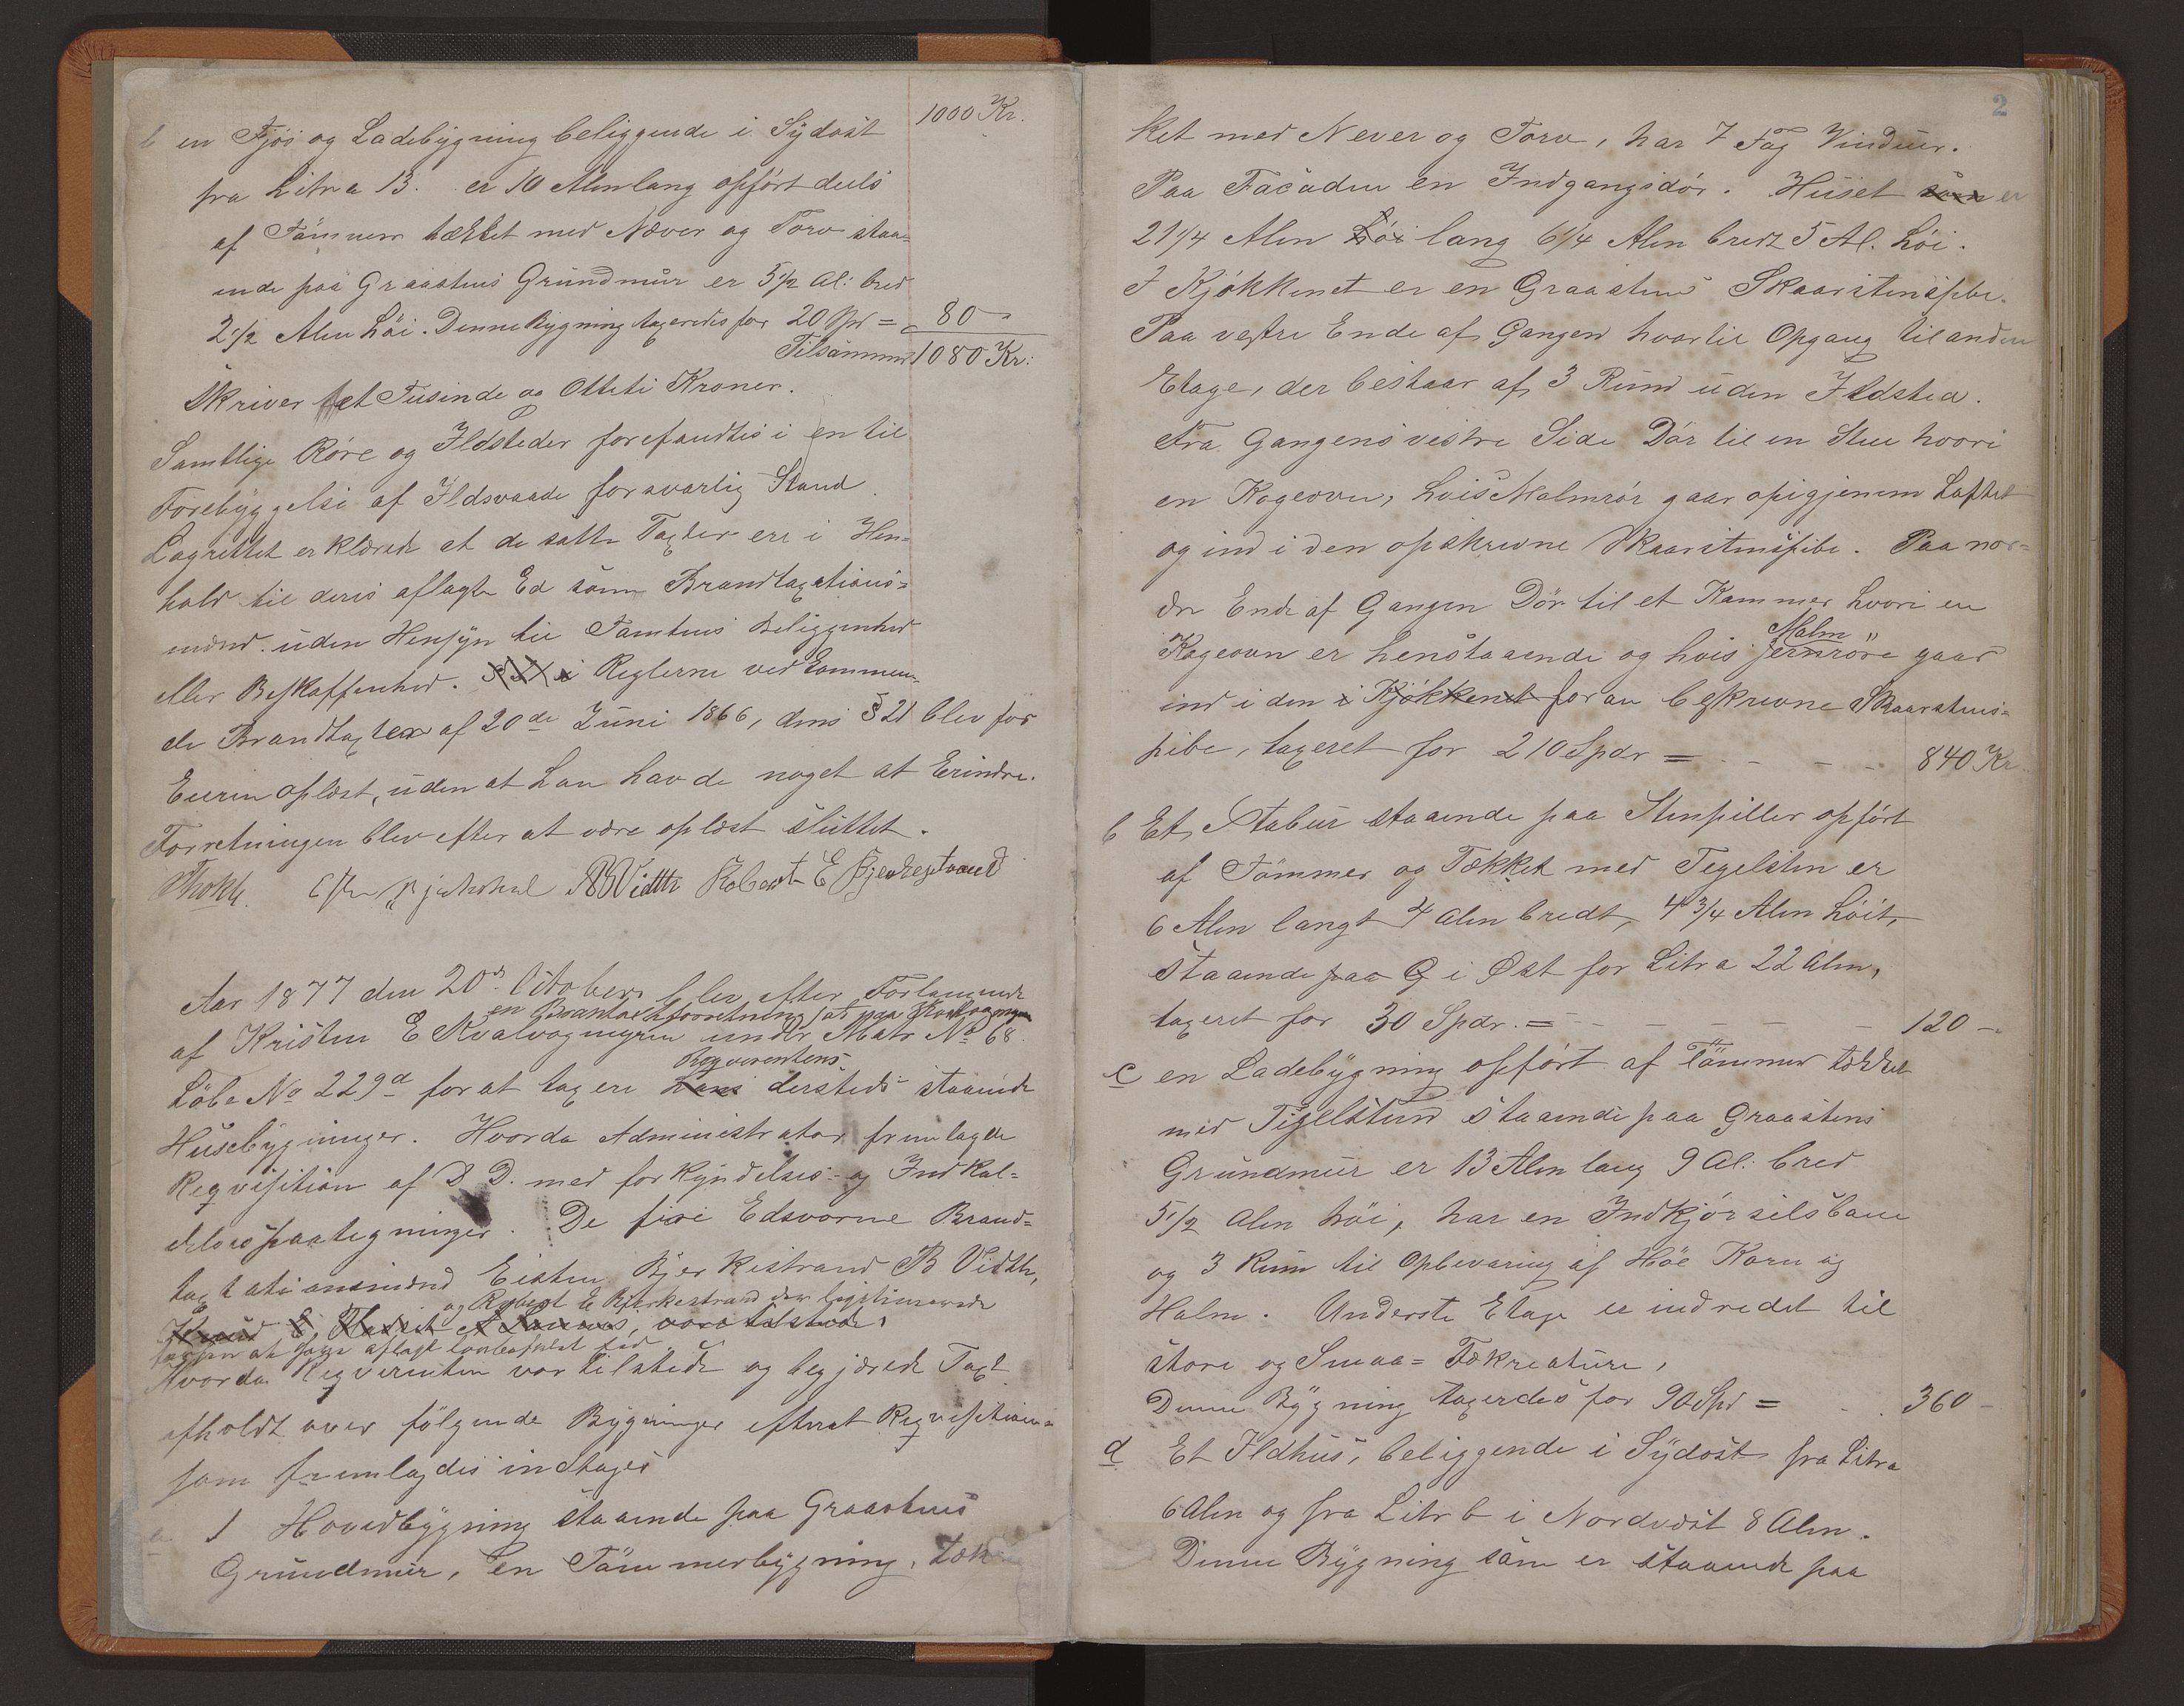 1000 Kr.
b en Fjös og Ladebygning beliggende i Sydost
fra Litra 13. er 10 Alen lang opfört deels
af Tömmer tækket med Næver og Torv staa=
ende paa Graastens Grundmur er 5 1/2 Al: bred
2 1/2 Alen höi. Denne Bygning taxeredes for 20 Spd = 80 "
Tilsammen 1080 Kr:
Skriver et Tusinde og Otteti Kroner.
Samtlige Röre og Ildsteder forefandtes i en til
Forebyggelse af Ildsvaade forsvarlig Stand.
Lagrettet erklærede at de satte Taxter ere i Hen=
hold til deres aflagte Ed som Brandtaxations=
mænd uden Hensyn til Tomtens Beliggenhed
eller Beskaffenhed. Reglerne ved kommen=
de Brandtaxter af 20de Juni 1866, dens § 21 blev for
Eieren oplæst, uden at han havde noget at Erindre.
Forretningen blev efter at være oplæst sluttet.
Thokle. B Vidth Robert E Bjerkestrand
Aar 1877 den 20de Oktober blev efter Forlangende
en Brandtaxtforretning sat paa Kvalvogmyren
af Kristen E Kvalvogmyren under Matr No 68.
Löbe No 229d for at taxere
Reqvirentens
hans dersteds staaende
Husebygninger. Hvorda Administrator fremlagde
Reqvisition af D D. med forkyndelses- og Indkal=
delsespaategninger. De fire Edsvorne Brand=
taxtationsmænd Eisten Bjerkestrand B Vidth,
og Robert E Bjerkestrand der legitimerede
, vare tilstede,
for at have aflagt lovbefalet Ed
Hvorda Reqvirenten var tilstede og begjærede Taxt
afholdt over fölgende Bygninger efterat Reqvisitionen
som fremlagdes indtages
a 1 Hovedbygning staaende paa Graastens
Grundmur, en Tömmerbygning, tæk=
2
ket med Never og Torv, har 7 Fag Vinduer.
Paa Facaden en Indgangsdör. Huset som er
21 1/4 Alen höi lang 6 1/4 Alen bredt 5 Al. höi.
I Kjökkenet er en Graastens Skaarstenspibe.
Paa vestre Ende af Gangen hvortil Opgang til anden
Etage, der bestaar af 3 Rum uden Ildsted.
Fra Gangens vestre Side Dör til en Stue hvori
en Kogeovn, hvis Malmrör gaar opigjennem Loftet
og ind i den opskrevne Skaarstenspibe. Paa nor=
dre Ende af Gangen Dör til et Kammer hvori en
Malm "
Kogeovn er henstaaende og hvis jernröre gaar
ind i den i Kjökkenet foran beskrevne Skaarstens=
pibe, taxeret for 210 Spdr = - - - 840 Kr.
b Et Stabur staaende paa Stenpiller opfört
af Tömmer og Tækket med Tegelsten er
6 Alen langt 4 Alen bredt, 4 3/4 Alen höit,
staaende paa G i Öst for Litra 22 Alen,
taxeret for 30 Spdr. = - - - - - - 120 -
c en Ladebygning opfört af Tömmer tækket
med Tigelsten staaende paa Graastens
Grundmur er 13 Alen lang 9 Al: bred
5 1/2 Alen höi, har en Indkjörselsbane
og 3 Rum til Opbevaring af Höe Korn og
Halm. Underste Etage er indredet til
store og Smaa= Fækreature,
Denne Bygning taxerdes for 90 Spd = - - 360 -
d Et Ildhus, beliggende i Sydost fra Litra
6 Alen og fra Litr b i Nordvöst 8 Alen.
Denne Bygning som er staaende paa